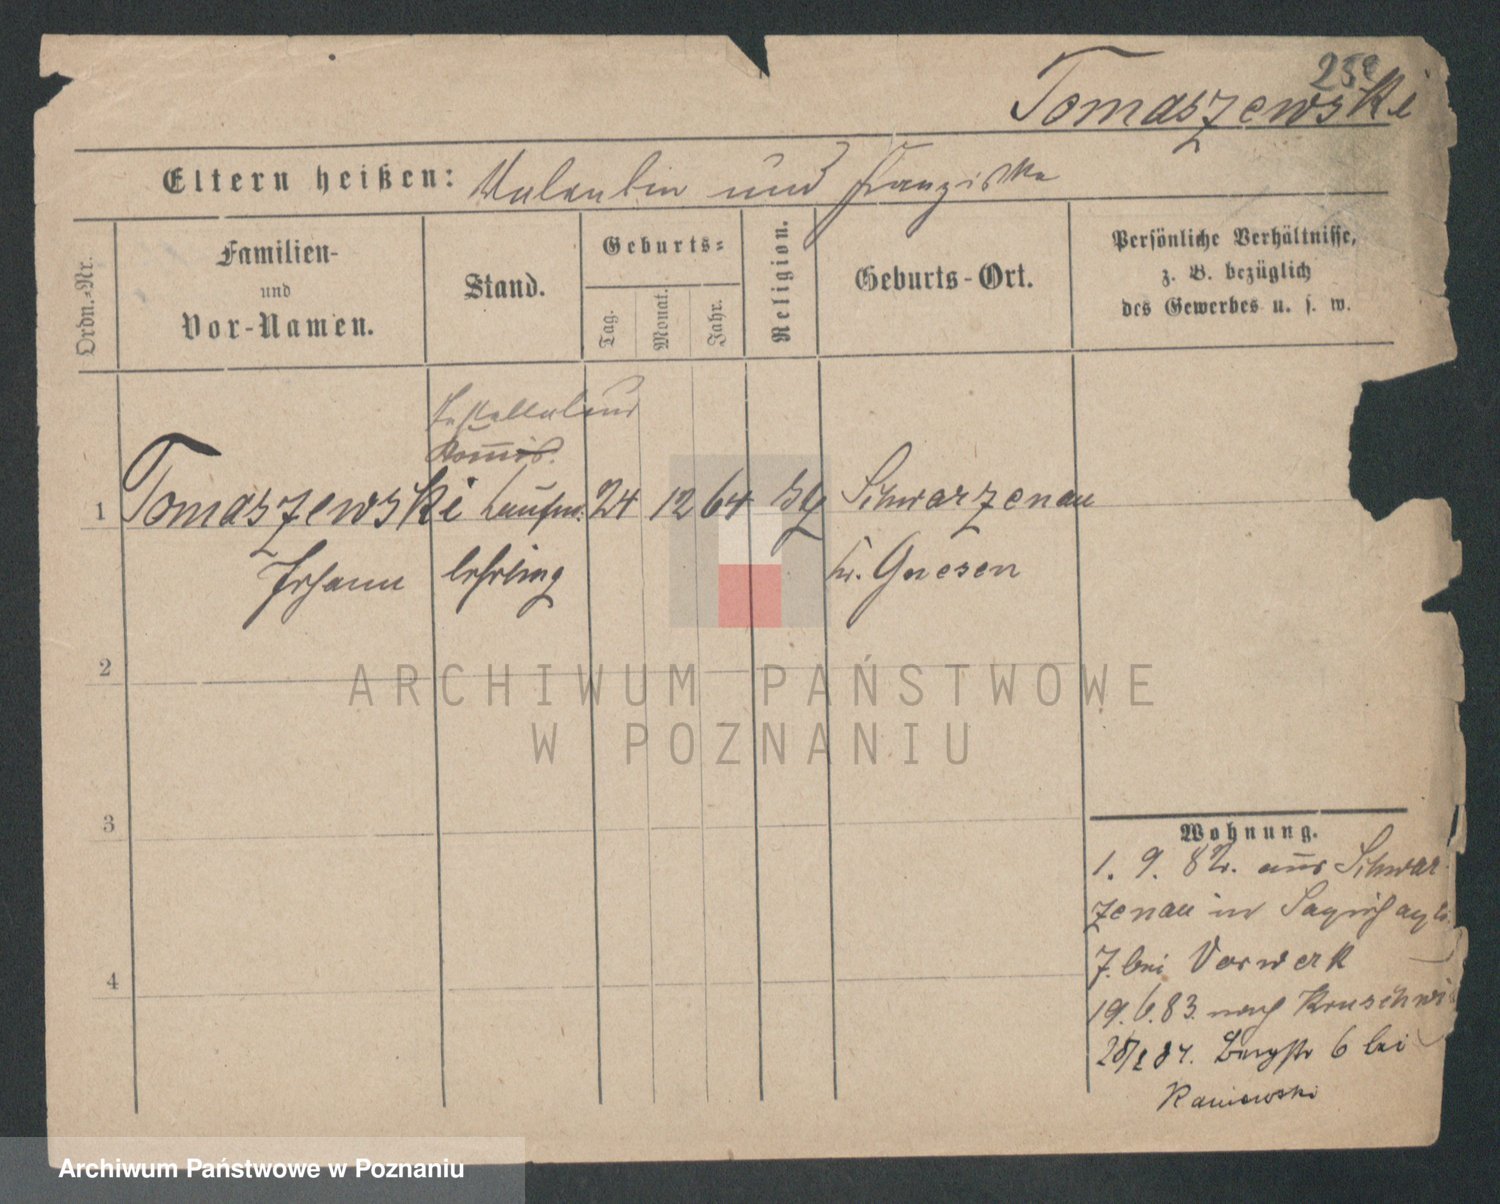 25
Tomaszewski
Eltern heißen: Valentin und Franziska
Ordn.-Nr.
Familien-
und
Vor-Namen.
Stand.
Geburts-
Tag.
Monat.
Jahr.
Religion.
Geburts-Ort.
Persönliche Verhältnisse,
z. B. bezüglich
des Gewerbes u. s. w.
Commis.
1 Tomaszewski Kaufm. 24 12 64 Schwarzenau
Johann lehrling Kr. Gnesen
2
ARCHIWUM PAŃSTWOWE
W POZNANIU
3
4
Wohnung.
1. 9. 82. aus Schwar
zenau in
7. bei Vorwerk
19. 6. 83. nach Kruschwi
84. Bergstr 6 bei
Kaniewski
Archiwum Państwowe w Poznaniu